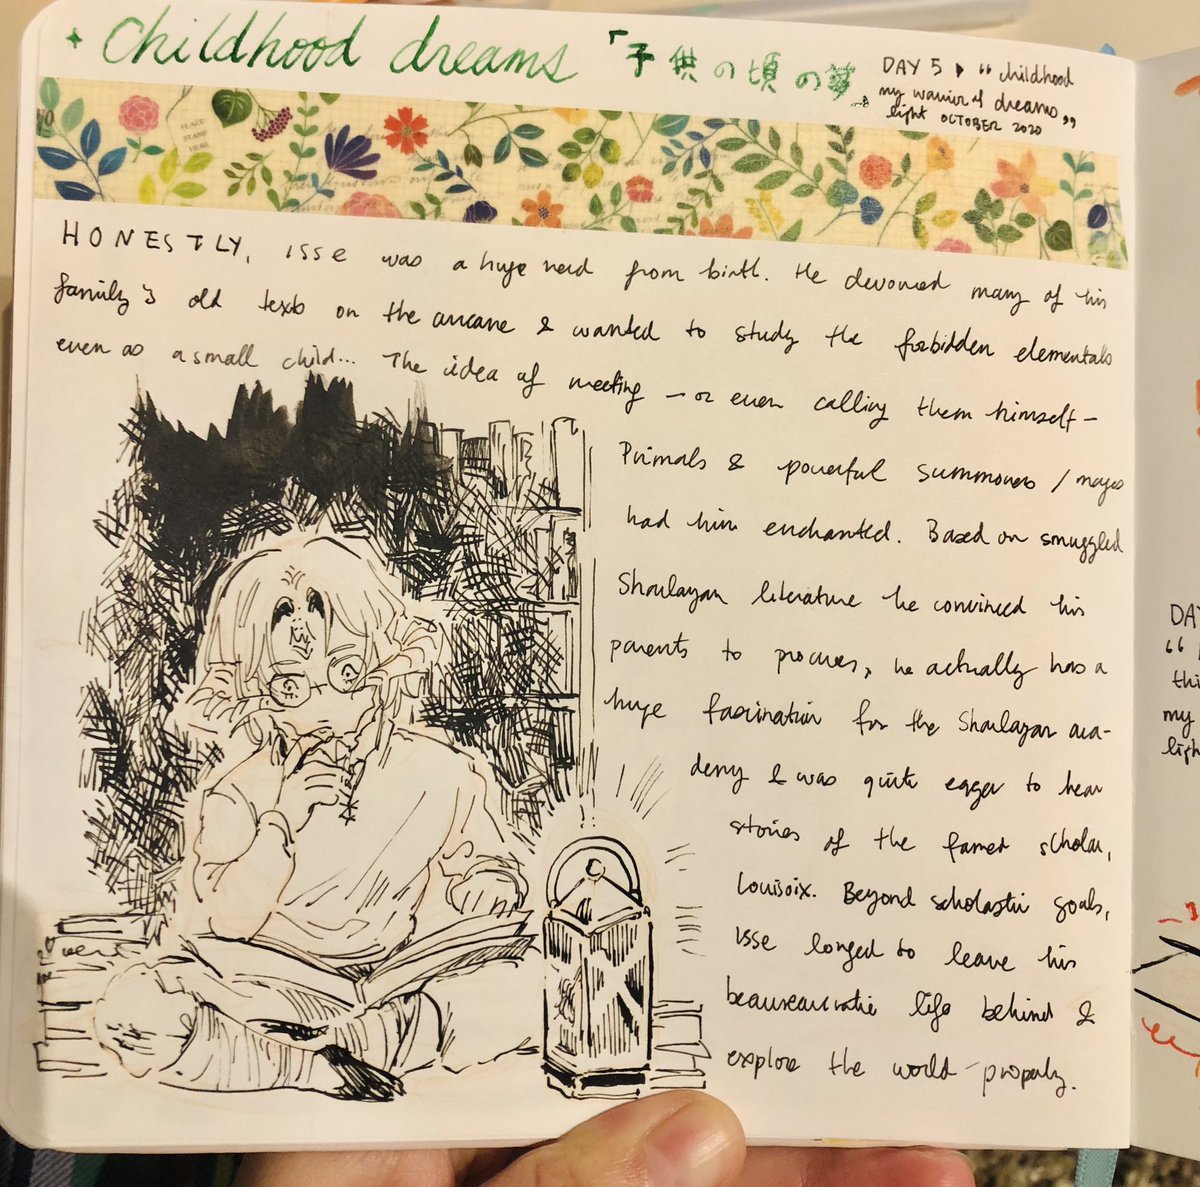 Childhood dreams 「子供の頃の夢」
DAY 5 ▸ "childhood
my warrior of dreams"
light OCTOBER 2020
PLACE
STAMP
HERE
HONESTLY, isse was a huge nerd from birth. He devoured many of his
family's old texts on the arcane & wanted to study the forbidden elementals
even as a small child... The idea of meeting – or even calling them himself –
Primals & powerful summoners / mages
had him enchanted. Based on smuggled
Sharlayan literature he convinced his
parents to procure, he actually has a
huge fascination for the Sharlayan aca-
demy & was quite eager to hear
stories of the famed scholar,
Louisoix. Beyond scholastic goals,
isse longed to leave his
beaureaucratic life behind &
explore the world properly.
DAY
"
thi
my
ligh